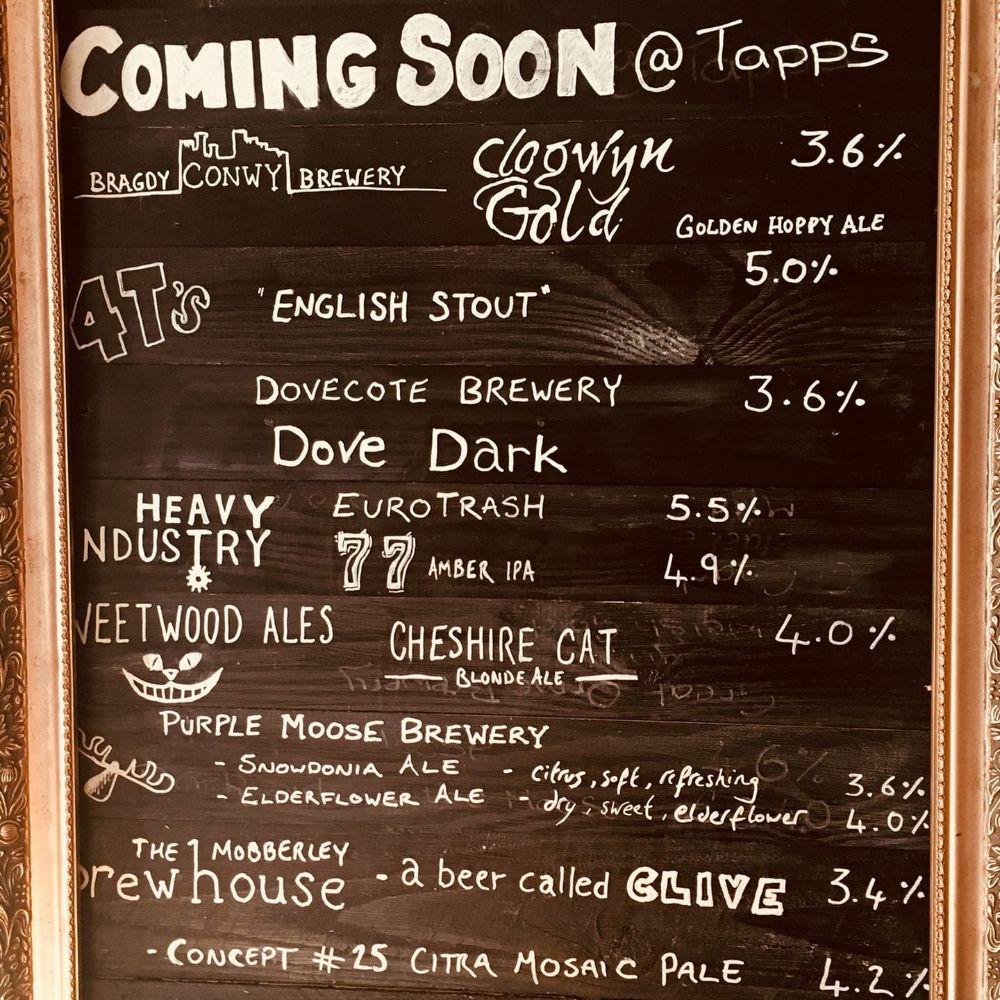 COMING SOON @ Tapps
BRAGDY CONWY BREWERY Clogwyn Gold 3.6%
GOLDEN HOPPY ALE
4T's "ENGLISH STOUT" 5.0%
DOVECOTE BREWERY 3.6%
Dove Dark
HEAVY NDUSTRY EUROTRASH 5.5%
77 AMBER IPA 4.9%
WEETWOOD ALES CHESHIRE CAT 4.0%
BLONDE ALE
PURPLE MOOSE BREWERY
- SNOWDONIA ALE - citrus, soft, refreshing 3.6%
- ELDERFLOWER ALE - dry, sweet, elderflower 4.0%
THE MOBBERLEY
brewhouse - a beer called CLIVE 3.4%
- CONCEPT #25 CITRA MOSAIC PALE 4.2%